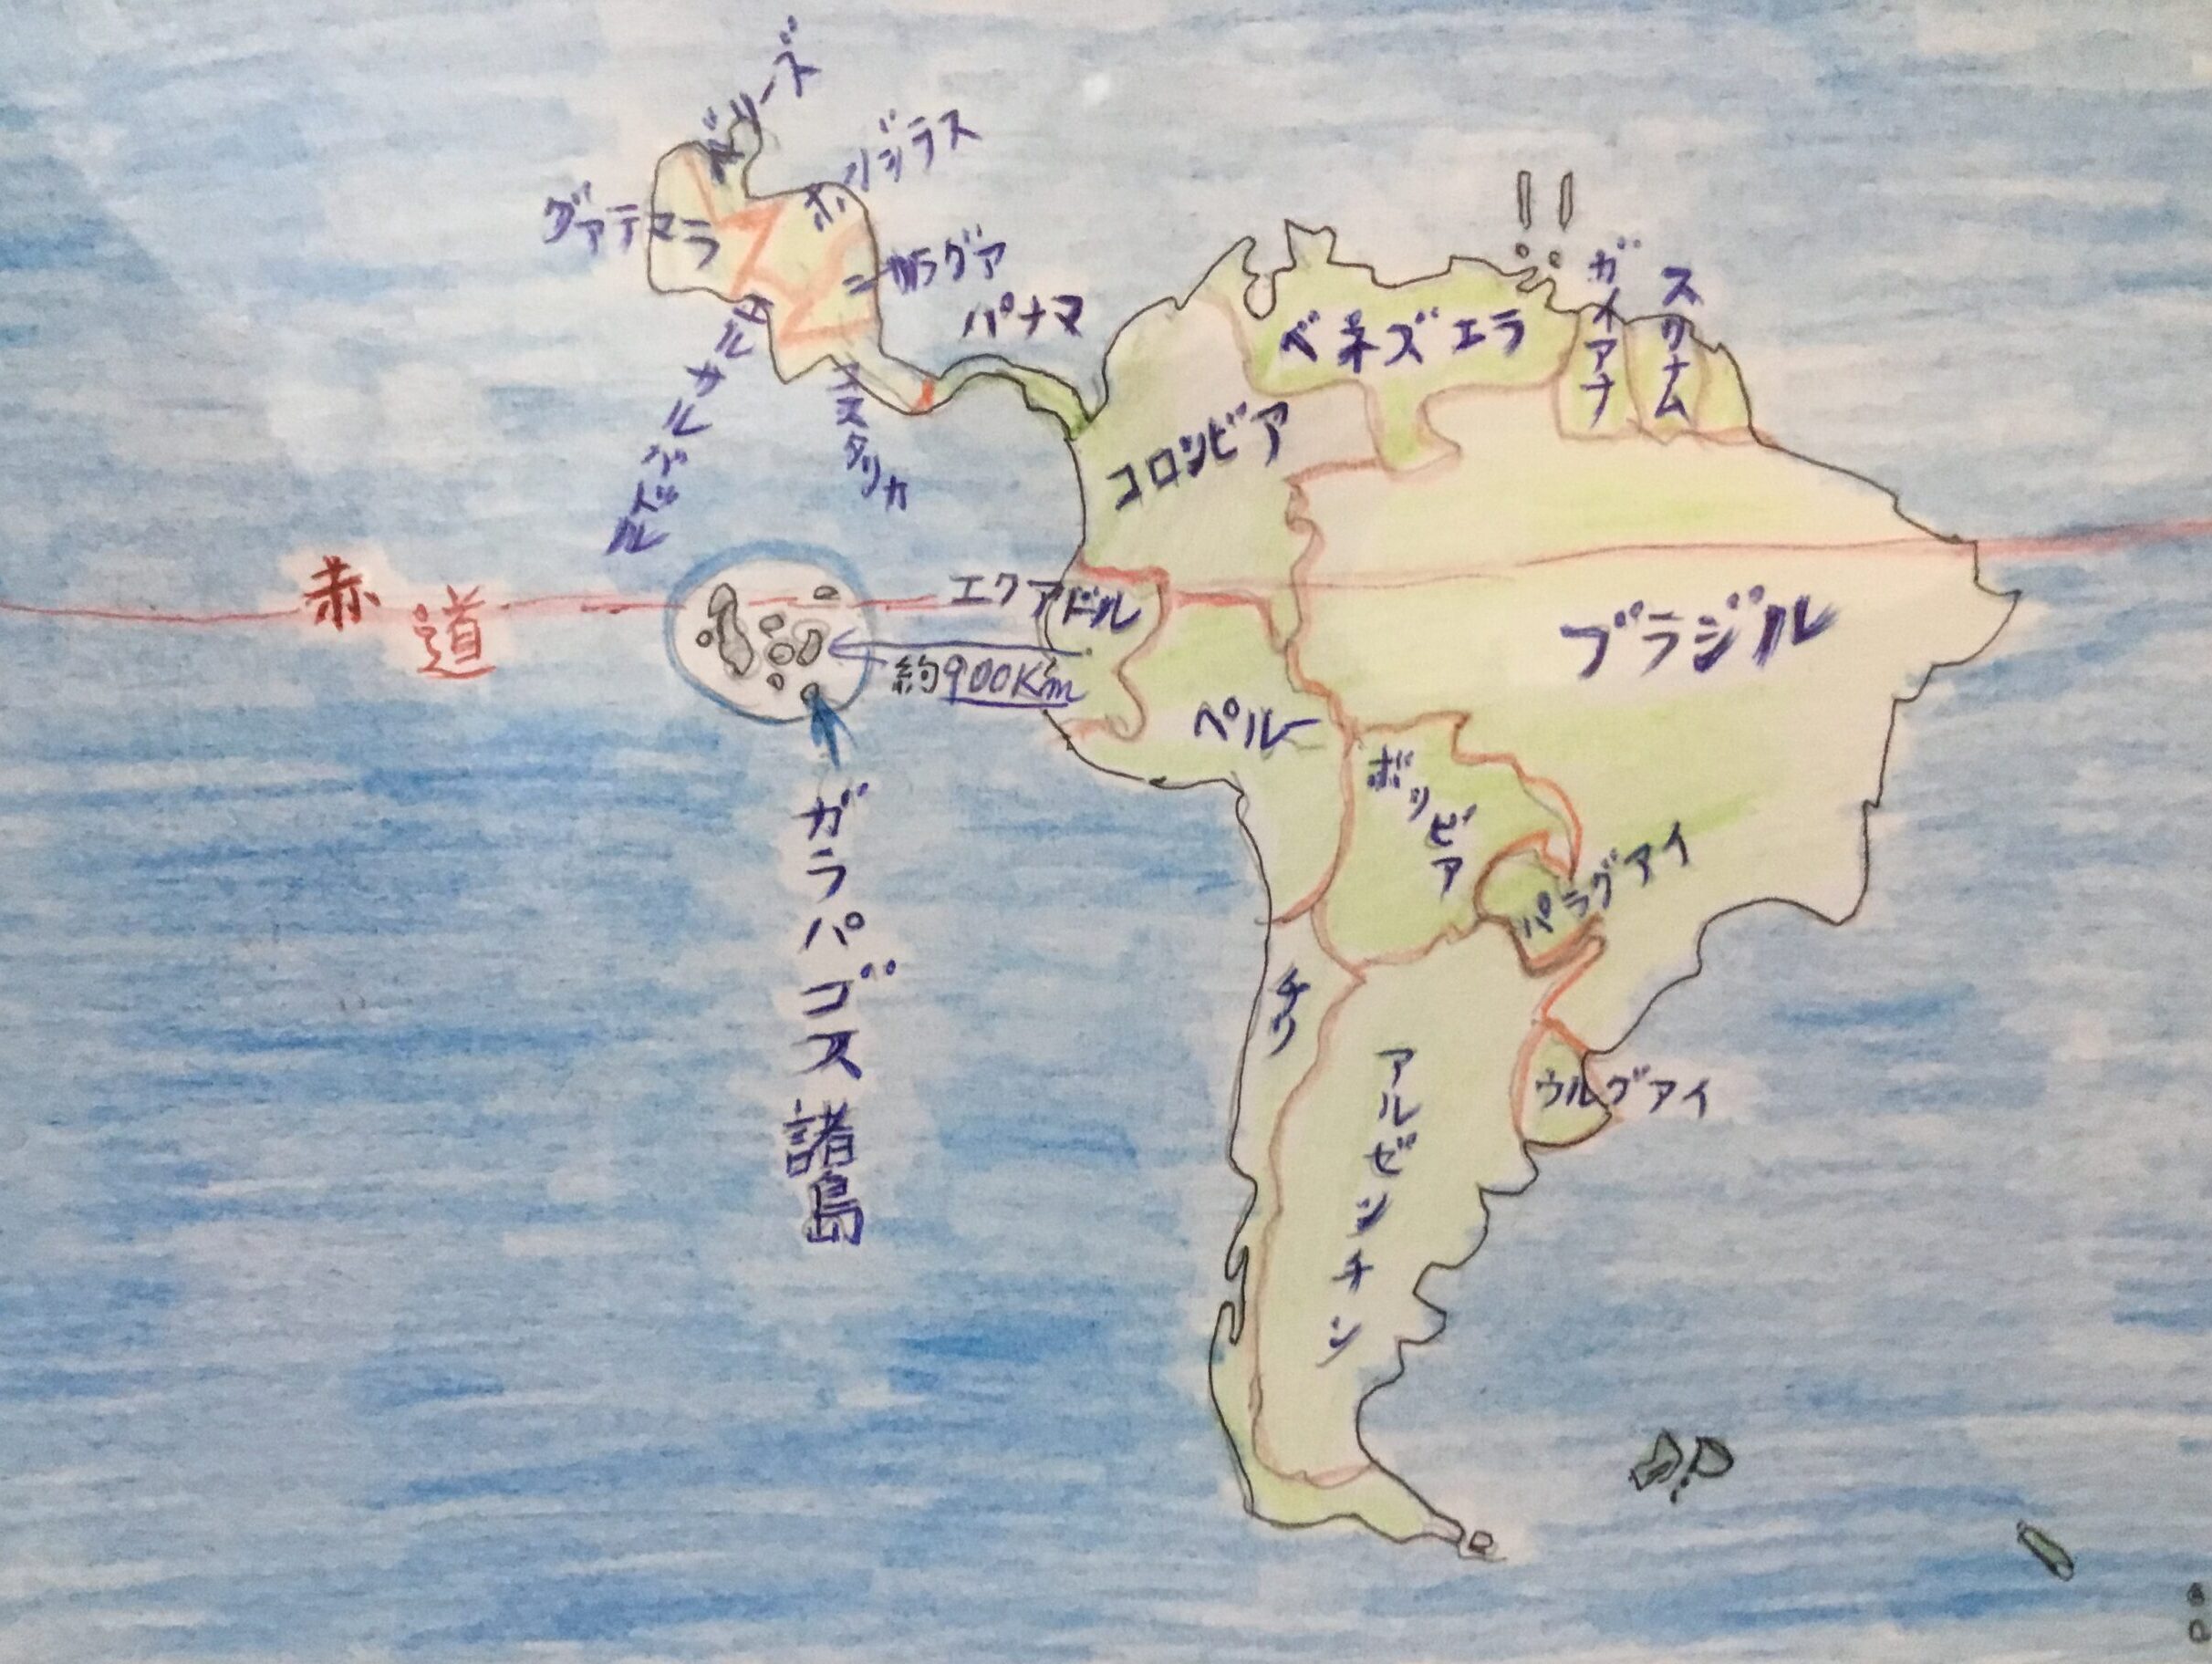 ベリーズ
ホンジラス
グァテマラ
ニカラグア
パナマ
エルサルバドル
コスタリカ
ベネズエラ
ガイアナ
スリナム
コロンビア
赤道
エクアドル
約900Km
ブラジル
ペルー
ボリビア
パラグアイ
ガラパゴス諸島
チリ
アルゼンチン
ウルグアイ